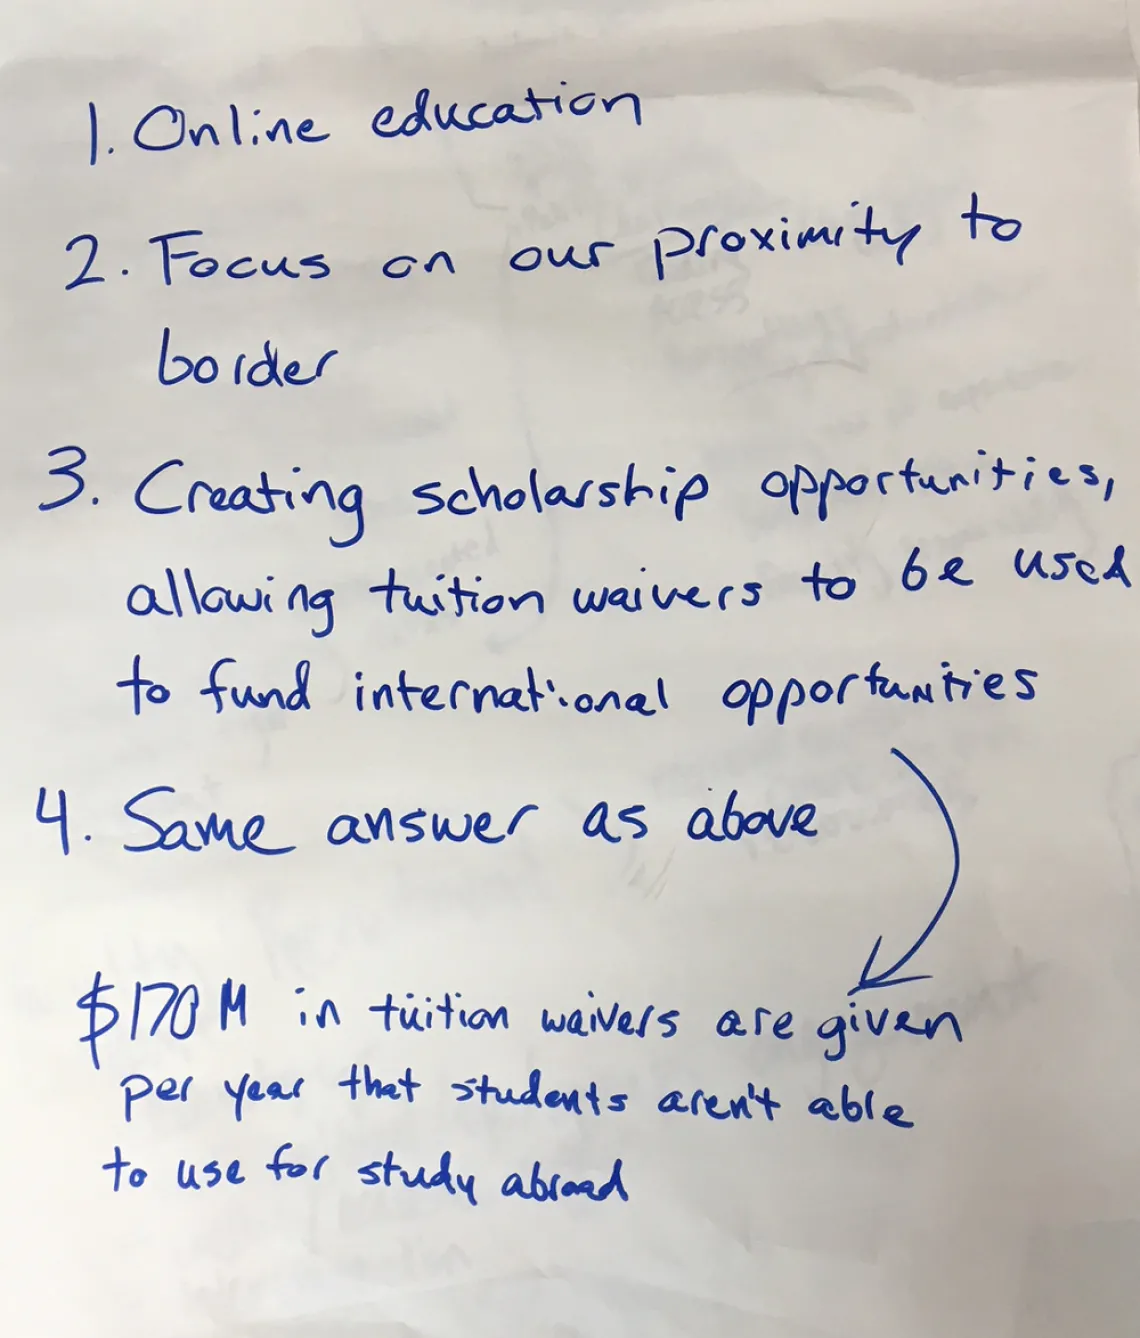 1. Online education
2. Focus on our proximity to
border
3. Creating scholarship opportunities,
allowing tuition waivers to be used
to fund international opportunities
4. Same answer as above
$170 M in tuition waivers are given
per year that students aren't able
to use for study abroad